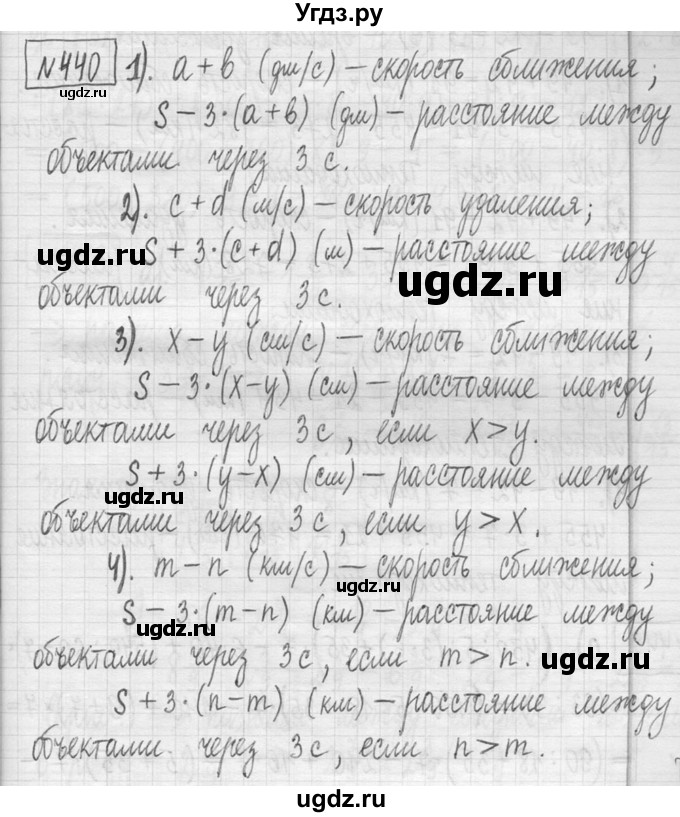 Угдз.ру
№440 1). a + b (дм/с) – скорость сближения;
ugdz.ru
S – 3·(a + b) (дм) – расстояние между
объектами через 3 с.
2). c + d (м/с) – скорость удаления;
ugdz.ru ugdz.ru
S + 3·(c + d) (м) – расстояние между
ugdz.ru
объектами через 3 с.
3). x – y (см/с) – скорость сближения;
S – 3·(x – y) (см) – расстояние между
ugdz.ru
объектами через 3 с, если x > y.
S + 3·(y – x) (см) – расстояние между
ugdz.ru
объектами через 3 с, если y > x.
4). m – n (км/с) – скорость сближения;
ugdz.ru
S – 3·(m – n) (км) – расстояние между
ugdz.ru
объектами через 3 с, если m > n.
ugdz.ru
S + 3·(n – m) (км) – расстояние между
объектами через 3 с, если n > m.
ugdz.ru ugdz.ru
ugdz.ru